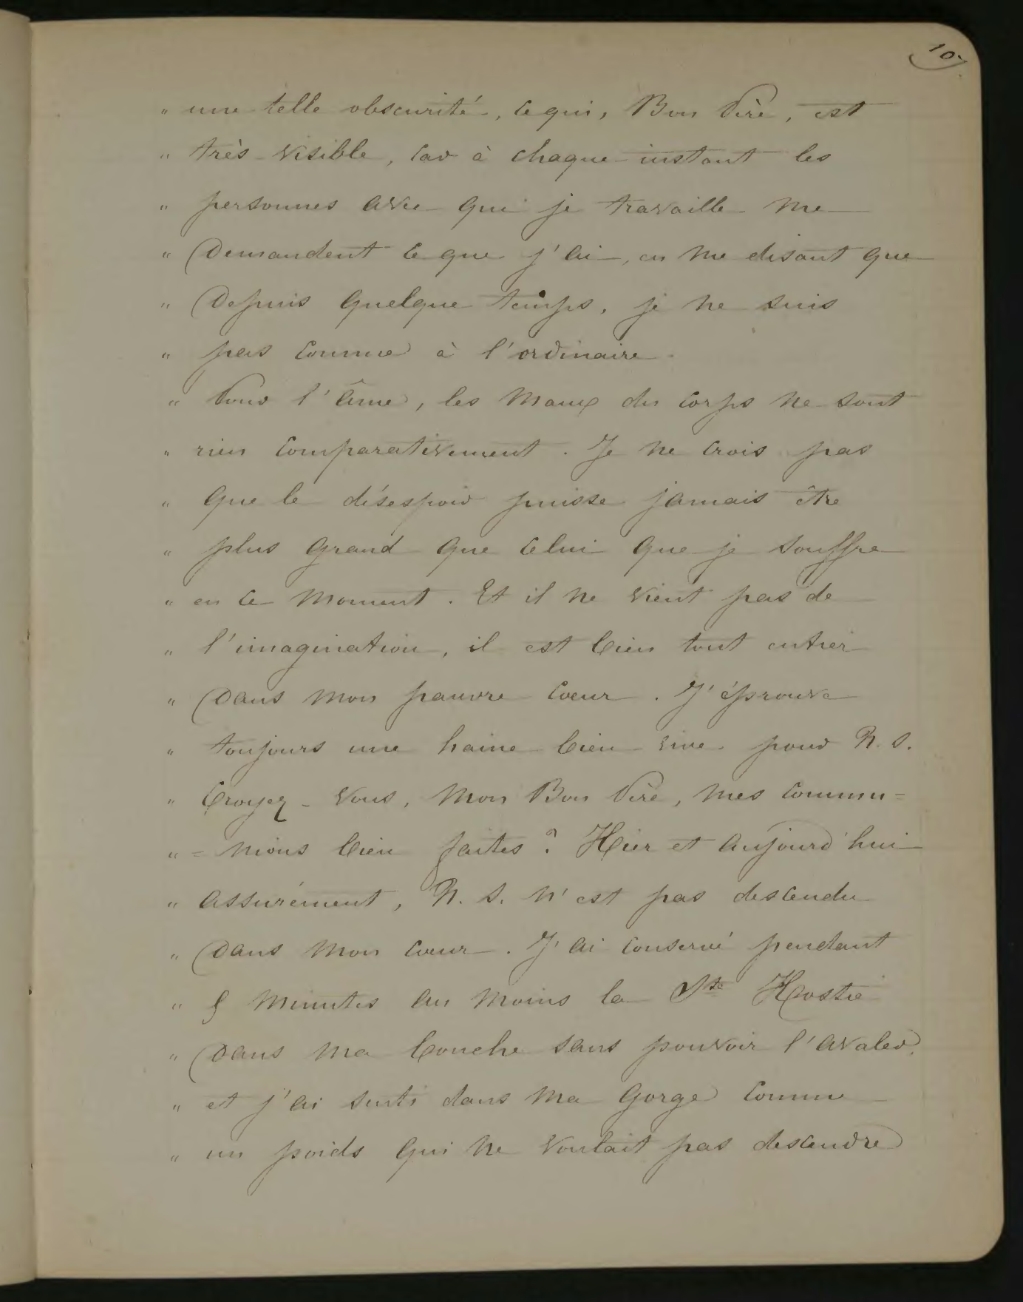 107
" une telle obscurité, ce qui, Bon Père, est
" très visible, car à chaque instant les
" personnes avec qui je travaille me
" Demandent ce que j'ai, en me disant que
" Depuis quelque temps, je ne suis
" pas comme à l'ordinaire.
" Pour l'âme, les maux du corps ne sont
" rien comparativement. Je ne crois pas
" que le désespoir puisse jamais être
" plus grand que celui que je souffre
" en ce moment. Et il ne vient pas de
" l'imagination, il est bien tout entier
" Dans mon pauvre cœur. J'éprouve
" toujours une haine bien vive pour N. S.
" Croyez-vous, mon Bon Père, mes commu=
" =nions bien faites? Hier et aujourd'hui
" assurément, N. S. n'est pas descendu
" Dans mon cœur. J'ai conservé pendant
" 8 minutes au moins la Ste Hostie
" Dans ma bouche sans pouvoir l'avaler.
" et j'ai senti dans ma gorge comme
" un poids qui ne voulait pas descendre